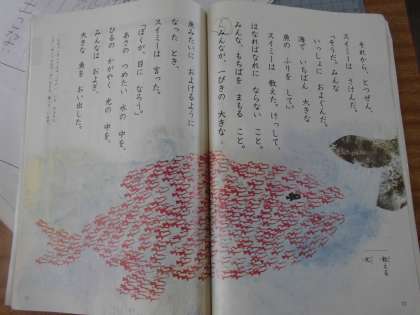 それから、とつぜん、
スイミーは さけんだ。
「そうだ。みんな
いっしょに およぐんだ。
海で いちばん 大きな
魚の ふりを して。」
スイミーは 教えた。けっして、
はなればなれに ならない こと。
みんな、もちばを まもる こと。
みんなが、一ぴきの 大きな
魚みたいに およげるように
なった とき、
スイミーは 言った。
「ぼくが、目に なろう。」
あさの つめたい 水の 中を、
ひるの かがやく 光の 中を、
みんなは およぎ、
大きな 魚を おい出した。
教える
光